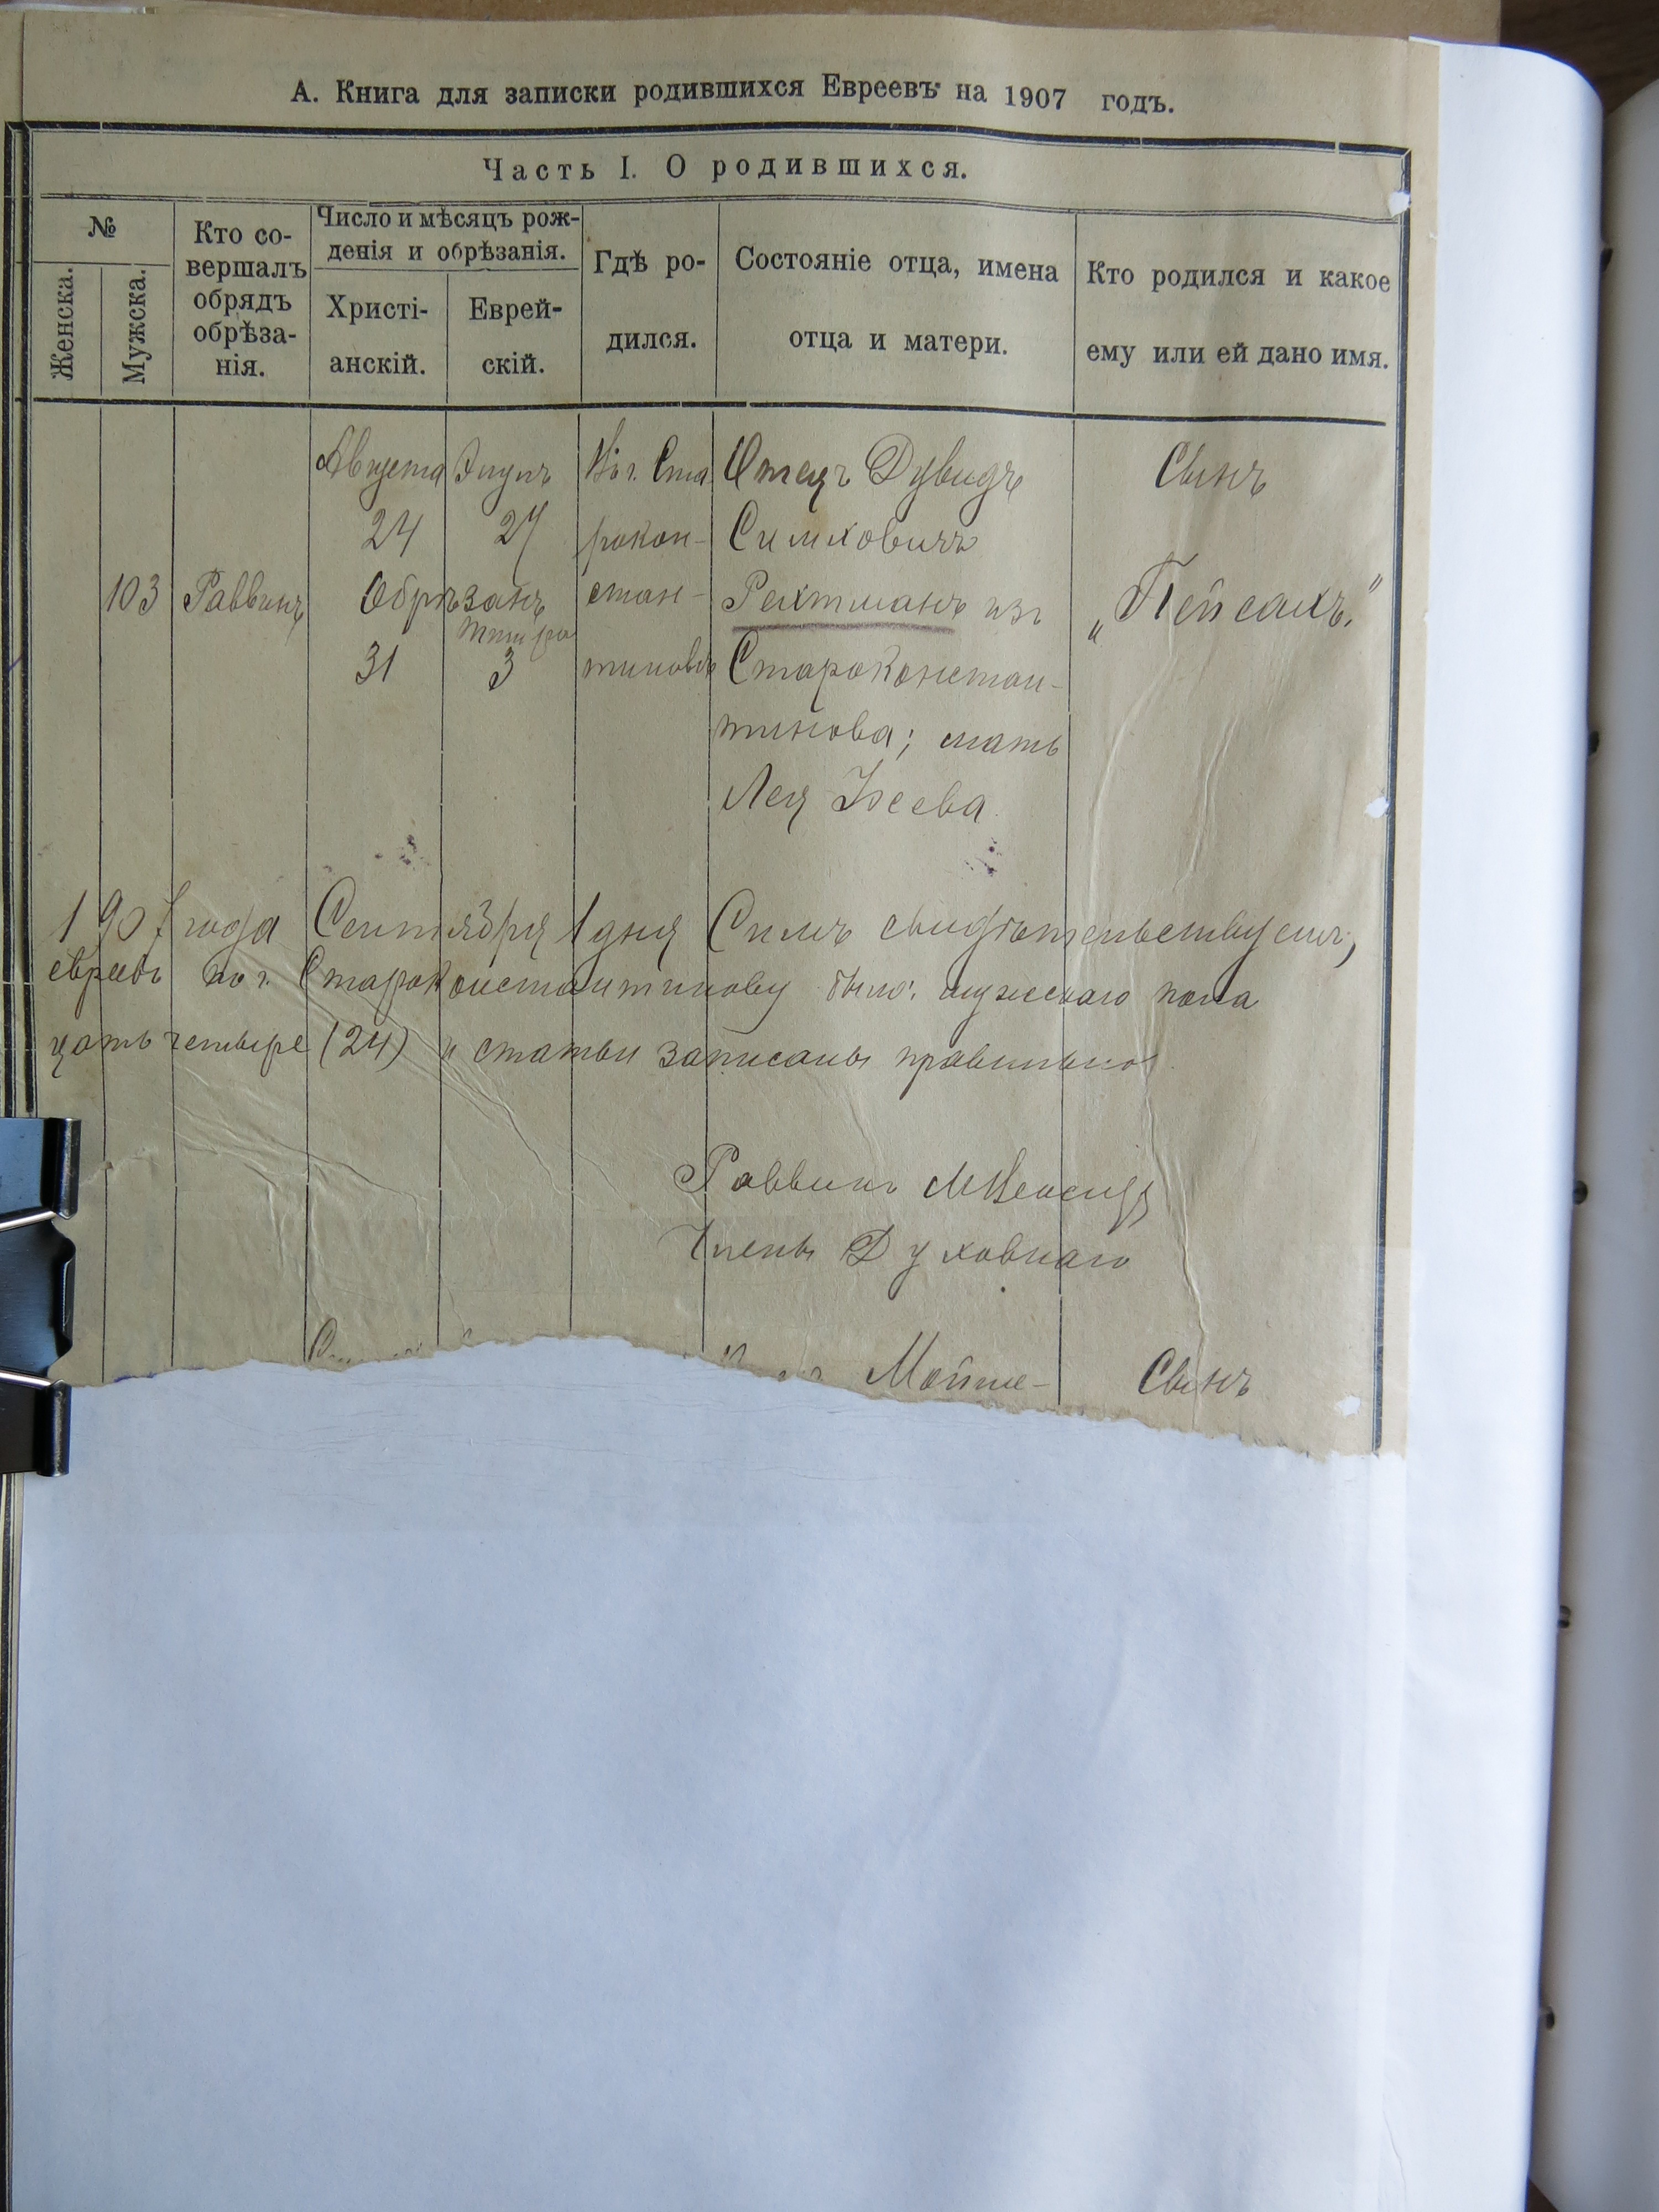 А. Книга для записки родившихся Евреевъ на 1907 годъ.
Часть I. О родившихся.
№
Женска.
Мужска.
Кто со-
вершалъ
обрядъ
обрѣза-
нія.
Число и мѣсяцъ рож-
денія и обрѣзанія.
Христі-
анскій.
Еврей-
скій.
Гдѣ ро-
дился.
Состояніе отца, имена
отца и матери.
Кто родился и какое
ему или ей дано имя.
103
Раввинъ
Августа
24
Обрѣзанъ
31
Элулъ
27
Тишри
3
Въ г. Ста
рокон-
стан-
тиновѣ
Отецъ Дувидъ
Симховичъ
Рехтманъ изъ
Староконстан-
тинова; мать
Лея
Сынъ
„Пейсахъ."
1907 года Сентября 1 дня Симъ свидѣтельствуемъ,
евреевъ по г. Староконстантинову было: мужескаго пола
цать четыре (24) и статьи записаны правильно.
Раввинъ
Члены Духовнаго
Мойше-
Сынъ